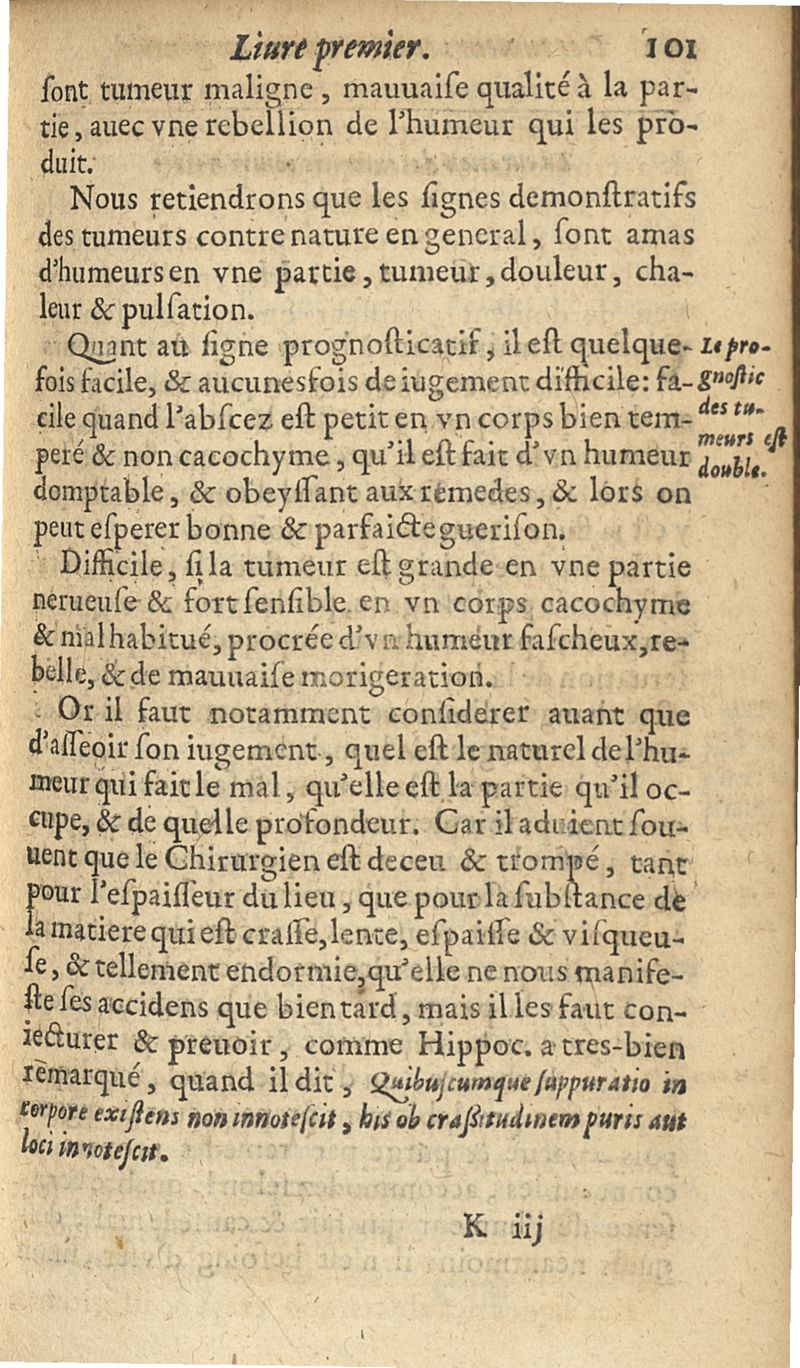 Liure premier. 101
ſont tumeur maligne, mauuaiſe qualité à la par-
tie, auec vne rebellion de l'humeur qui les pro-
duit.
Nous retiendrons que les ſignes demonſtratifs
des tumeurs contre nature en general, ſont amas
d'humeurs en vne partie, tumeur, douleur, cha-
leur & pulſation.
Quant au ſigne prognoſticatif, il eſt quelque-
fois facile, & aucunesfois de iugement difficile: fa-
cile quand l'abſcez eſt petit en vn corps bien tem-
peré & non cacochyme, qu'il eſt fait d'vn humeur
domptable, & obeyſſant aux remedes, & lors on
peut eſperer bonne & parfaicte gueriſon.
Le pro-
gnoſtic
des tu-
meurs eſt
double.
Difficile, ſi la tumeur eſt grande en vne partie
nerueuſe & fort ſenſible en vn corps cacochyme
& mal habitué, procrée d'vn humeur faſcheux, re-
belle, & de mauuaiſe morigeration.
Or il faut notamment conſiderer auant que
d'aſſeoir ſon iugement, quel eſt le naturel de l'hu-
meur qui fait le mal, qu'elle eſt la partie qu'il oc-
cupe, & de quelle profondeur. Car il aduient ſou-
uent que le Chirurgien eſt deceu & trompé, tant
pour l'eſpaiſſeur du lieu, que pour la ſubſtance de
la matiere qui eſt craſſe, lente, eſpaiſſe & viſqueu-
ſe, & tellement endormie, qu'elle ne nous manife-
ſte ſes accidens que bien tard, mais il les faut con-
iecturer & preuoir, comme Hippoc. a tres-bien
remarqué, quand il dit, Quibuſcumque ſuppuratio in
corpore exiſtens non innoteſcit, his ob craſſitudinem puris aut
loci innoteſcit.
K iij